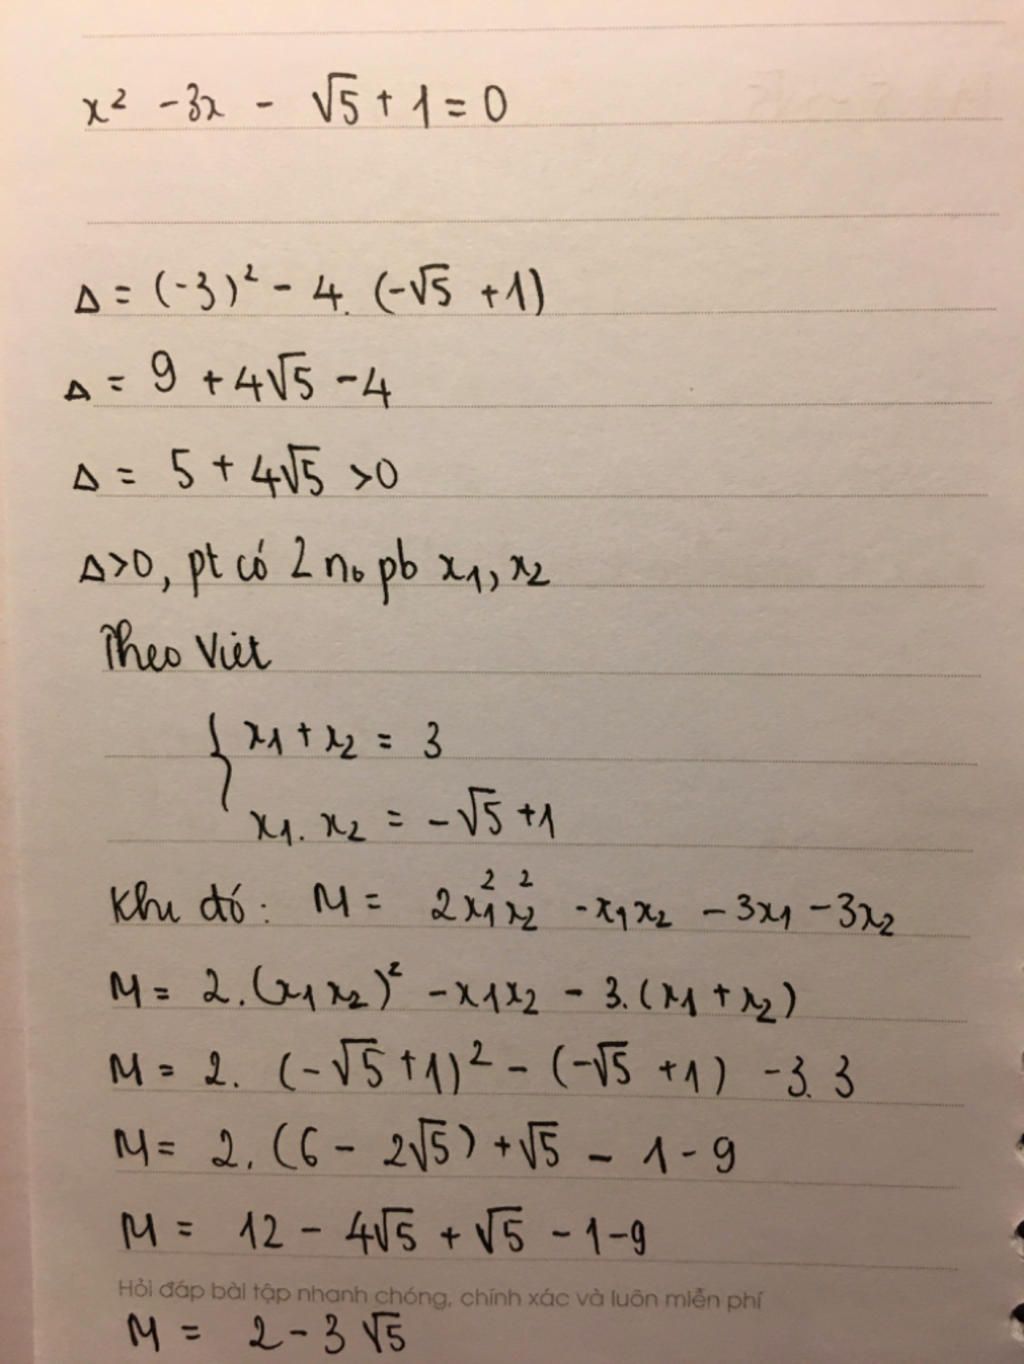 x² -3x - √5 + 1 = 0
Δ = (-3)² - 4. (-√5 +1)
Δ = 9 + 4√5 - 4
Δ = 5 + 4√5 >0
Δ>0, pt có 2 n₀ pb x₁, x₂
Theo Viet
{ x₁ + x₂ = 3
x₁. x₂ = -√5 +1
Khi đó: M = 2x₁²x₂² - x₁x₂ - 3x₁ - 3x₂
M = 2.(x₁x₂)² - x₁x₂ - 3.(x₁ + x₂)
M = 2. (-√5 +1)² - (-√5 +1) -3.3
M = 2. (6 - 2√5) + √5 - 1 - 9
M = 12 - 4√5 + √5 - 1 - 9
Hỏi đáp bài tập nhanh chóng, chính xác và luôn miễn phí
M = 2 - 3√5